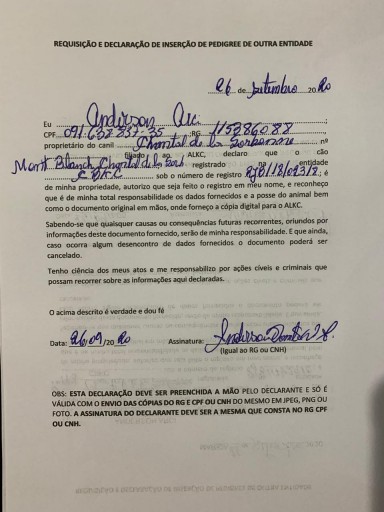 REQUISIÇÃO E DECLARAÇÃO DE INSERÇÃO DE PEDIGREE DE OUTRA ENTIDADE
26 de Setembro 2020
Eu Anderson
CPF 091.637.837-35 RG 115286088
proprietário do canil Chantal de la Sorbonne nº
filiado ao ALKC, declaro que o cão
Mont Blanch Chantal de la Sorb registrado na entidade
CBKC sob o número de registro RJB/18/02318; é
de minha propriedade, autorizo que seja feito o registro em meu nome, e reconheço
que é de minha total responsabilidade os dados fornecidos e a posse do animal bem
como o documento original em mãos, onde forneço a cópia digital para o ALKC.
Sabendo-se que quaisquer causas ou consequências futuras recorrentes, oriundos por
informações deste documento fornecido, serão de minha responsabilidade. E que ainda,
caso ocorra algum desencontro de dados fornecidos o documento poderá ser
cancelado.
Tenho ciência dos meus atos e me responsabilizo por ações cíveis e criminais que
possam recorrer as informações aqui declaradas.
O acima descrito é verdade e dou fé
Data: 26/09/2020 Assinatura: Anderson
(Igual ao RG ou CNH)
OBS: ESTA DECLARAÇÃO DEVE SER PREENCHIDA A MÃO PELO DECLARANTE E SÓ É
VÁLIDA COM O ENVIO DAS CÓPIAS DO RG E CPF OU CNH DO MESMO EM JPEG, PNG OU
FOTO. A ASSINATURA DO DECLARANTE DEVE SER A MESMA QUE CONSTA NO RG CPF
OU CNH.